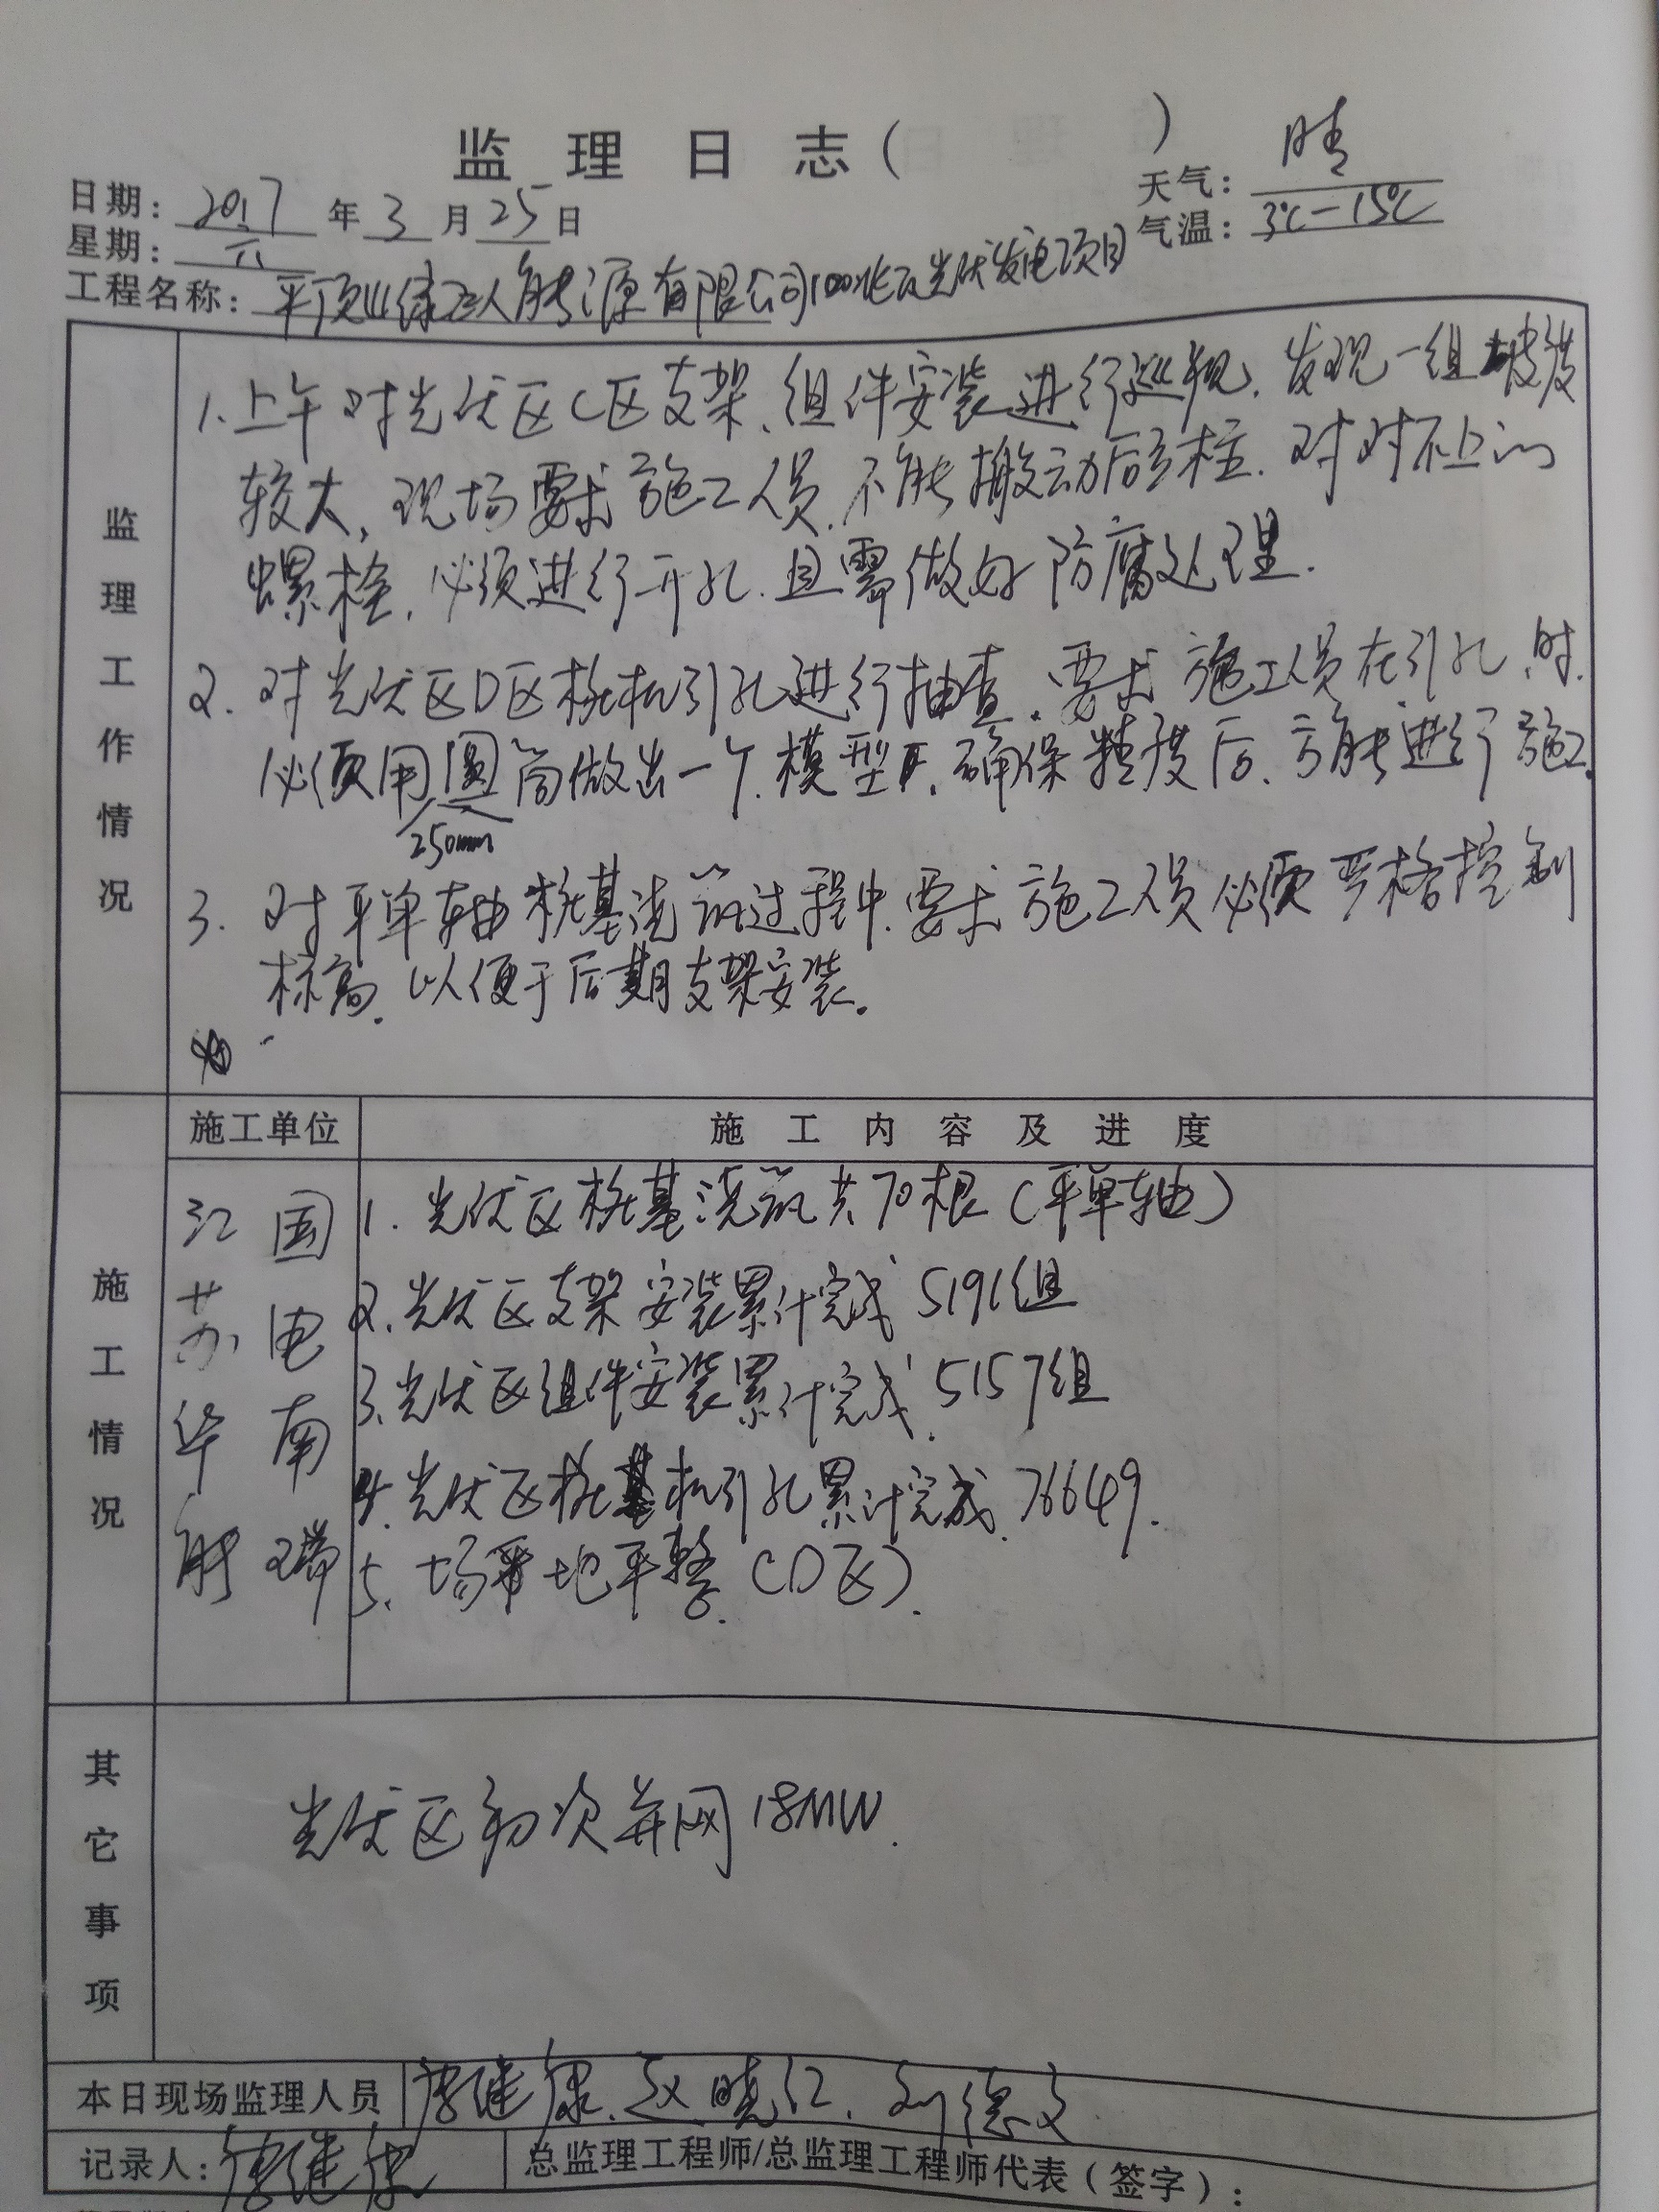 监理日志( )
天气: 晴
日期: 2017 年 3 月 25 日
气温: 3℃-15℃
星期: 六
工程名称: 平顶山绿立人能源有限公司100兆瓦光伏发电项目
监理工作情况
1.上午对光伏区C区支架、组件安装进行巡视.发现一组坡度
较大,现场要求施工人员.不能搬动后立柱.对对不上的
螺栓.必须进行开孔.且需做好防腐处理.
2.对光伏区D区桩机引孔进行抽查.要求施工人员在引孔时.
必须用圆筒做出一个模型.确保精度后.方能进行施工.
250mm
3.对平单轴桩基浇筑过程中.要求施工人员必须严格控制
标高.以便于后期支架安装。
施工情况
施工单位
施工内容及进度
江苏华能
国电南瑞
1.光伏区桩基浇筑共70根(平单轴)
2.光伏区支架安装累计完成5191组
3.光伏区组件安装累计完成5157组
4.光伏区桩基机引孔累计完成76649.
5.场地平整(D区).
其它事项
光伏区初次并网18MW.
本日现场监理人员 唐继康、赵晓红、刘德文
记录人: 唐继康
总监理工程师/总监理工程师代表(签字):